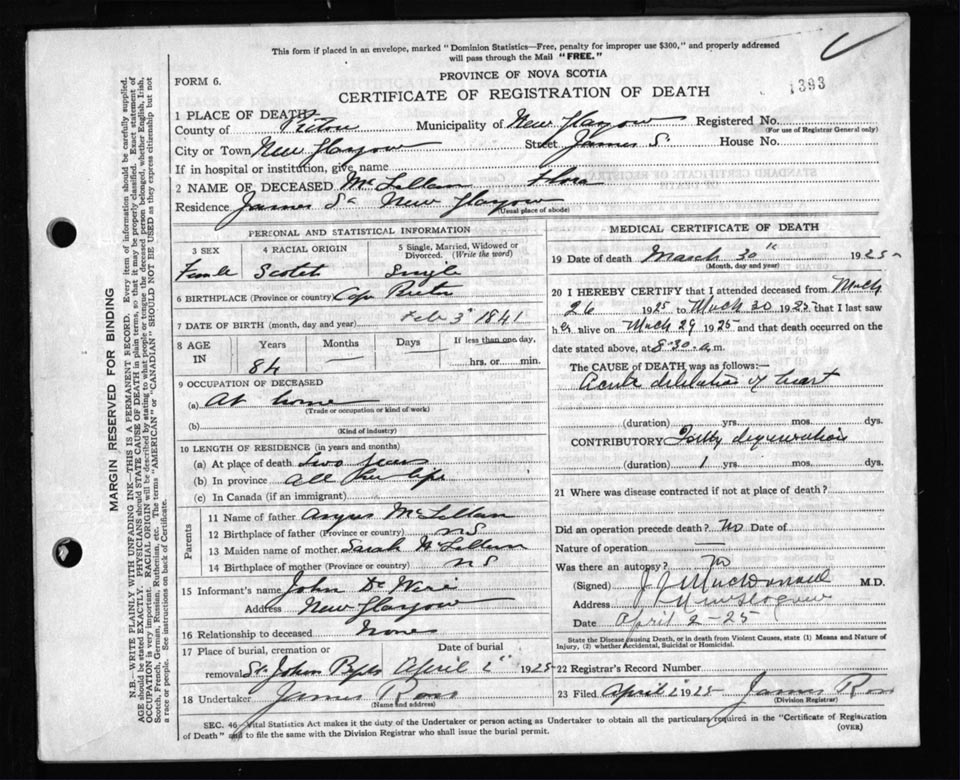 This form if placed in an envelope, marked "Dominion Statistics—Free, penalty for improper use $300," and properly addressed
will pass through the Mail "FREE."
FORM 6.
PROVINCE OF NOVA SCOTIA
CERTIFICATE OF REGISTRATION OF DEATH
1393
1 PLACE OF DEATH
County of Pictou Municipality of New Glasgow Registered No.
(For use of Registrar General only)
City or Town New Glasgow Street James St House No.
If in hospital or institution, give name
2 NAME OF DECEASED McLellan Flora
Residence James St New Glasgow
(Usual place of abode)
PERSONAL AND STATISTICAL INFORMATION
3 SEX 4 RACIAL ORIGIN 5 Single, Married, Widowed or Divorced. (Write the word)
Female Scotch Single
6 BIRTHPLACE (Province or country) Cape Breton
7 DATE OF BIRTH (month, day and year) Feb 3" 1841
8 AGE IN Years Months Days If less than one day,
84 — — hrs. or min.
9 OCCUPATION OF DECEASED
(a) At home
(Trade or occupation or kind of work)
(b)
(Kind of industry)
10 LENGTH OF RESIDENCE (in years and months)
(a) At place of death two years
(b) In province all her life
(c) In Canada (if an immigrant)
Parents
11 Name of father Angus McLellan
12 Birthplace of father (Province or country) NS
13 Maiden name of mother Sarah McLellan
14 Birthplace of mother (Province or country) NS
15 Informant's name John D
Address New Glasgow
16 Relationship to deceased None
17 Place of burial, cremation or removal Date of burial
St Johns April 2" 1925
18 Undertaker James Ross
(Name and address)
MEDICAL CERTIFICATE OF DEATH
19 Date of death March 30" 1925
(Month, day and year)
20 I HEREBY CERTIFY that I attended deceased from March
26 1925 to March 30 1925 that I last saw
her alive on March 29 1925 and that death occurred on
date stated above, at 8.30 a.m.
The CAUSE OF DEATH was as follows:—
Acute dilatation of heart
(duration) yrs. mos. dys.
CONTRIBUTORY Fatty degeneration
(duration) 1 yrs. mos. dys.
21 Where was disease contracted if not at place of death?
Did an operation precede death? No Date of
Nature of operation —
Was there an autopsy? No
(Signed) J. J. MacDonald M.D.
Address New Glasgow
Date April 2-25
State the Disease causing Death, or in death from Violent Causes, state (1) Means and Nature of
Injury, (2) whether Accidental, Suicidal or Homicidal.
22 Registrar's Record Number
23 Filed April 2" 1925 James Ross
(Division Registrar)
SEC. 46, Vital Statistics Act makes it the duty of the Undertaker or person acting as Undertaker to obtain all the particulars required in the "Certificate of Registration
of Death" and to file the same with the Division Registrar who shall issue the burial permit. (OVER)
MARGIN RESERVED FOR BINDING
N.B.—WRITE PLAINLY WITH UNFADING INK—THIS IS A PERMANENT RECORD. Every item of information should be carefully supplied.
AGE should be stated EXACTLY. PHYSICIANS should STATE CAUSE OF DEATH in plain terms, so that it may be properly classified. Exact statement of
OCCUPATION is very important. RACIAL ORIGIN will be described by stating to what people or tongue the deceased person belonged, whether English, Irish,
Scotch, French, German, Russian, Ruthenian, etc. The terms "AMERICAN" or "CANADIAN" SHOULD NOT BE USED as they express citizenship but not
a race or people. See instructions on back of Certificate.